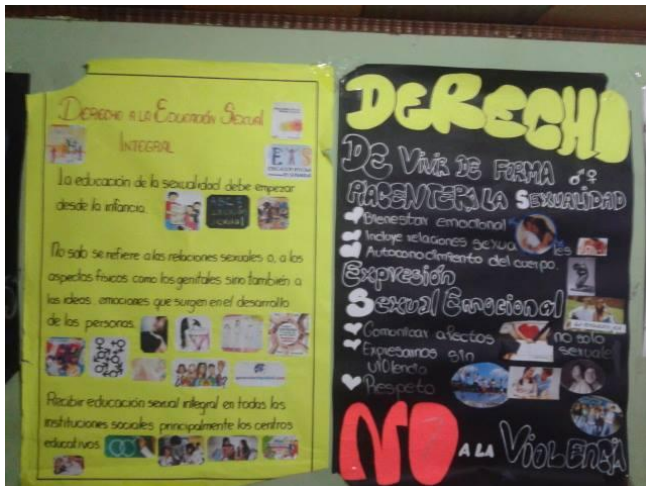 DERECHO A LA EDUCACIÓN SEXUAL
INTEGRAL
La educación de la sexualidad debe empezar
desde la infancia.
No solo se refiere a las relaciones sexuales o, a los
aspectos físicos como los genitales sino también a
las ideas, emociones que surgen en el desarrollo
de las personas.
Recibir educación sexual integral en todas las
instituciones sociales principalmente los centros
educativos.
DERECHO
DE VIVIR DE FORMA
PLACENTERA LA SEXUALIDAD
Bienestar emocional
Incluye relaciones sexuales
Autoconocimiento del cuerpo.
Expresión
Sexual Emocional
Comunicar afectos no solo
sexuales
Expresarnos sin
violencia
Respeto
NO A LA VIOLENCIA